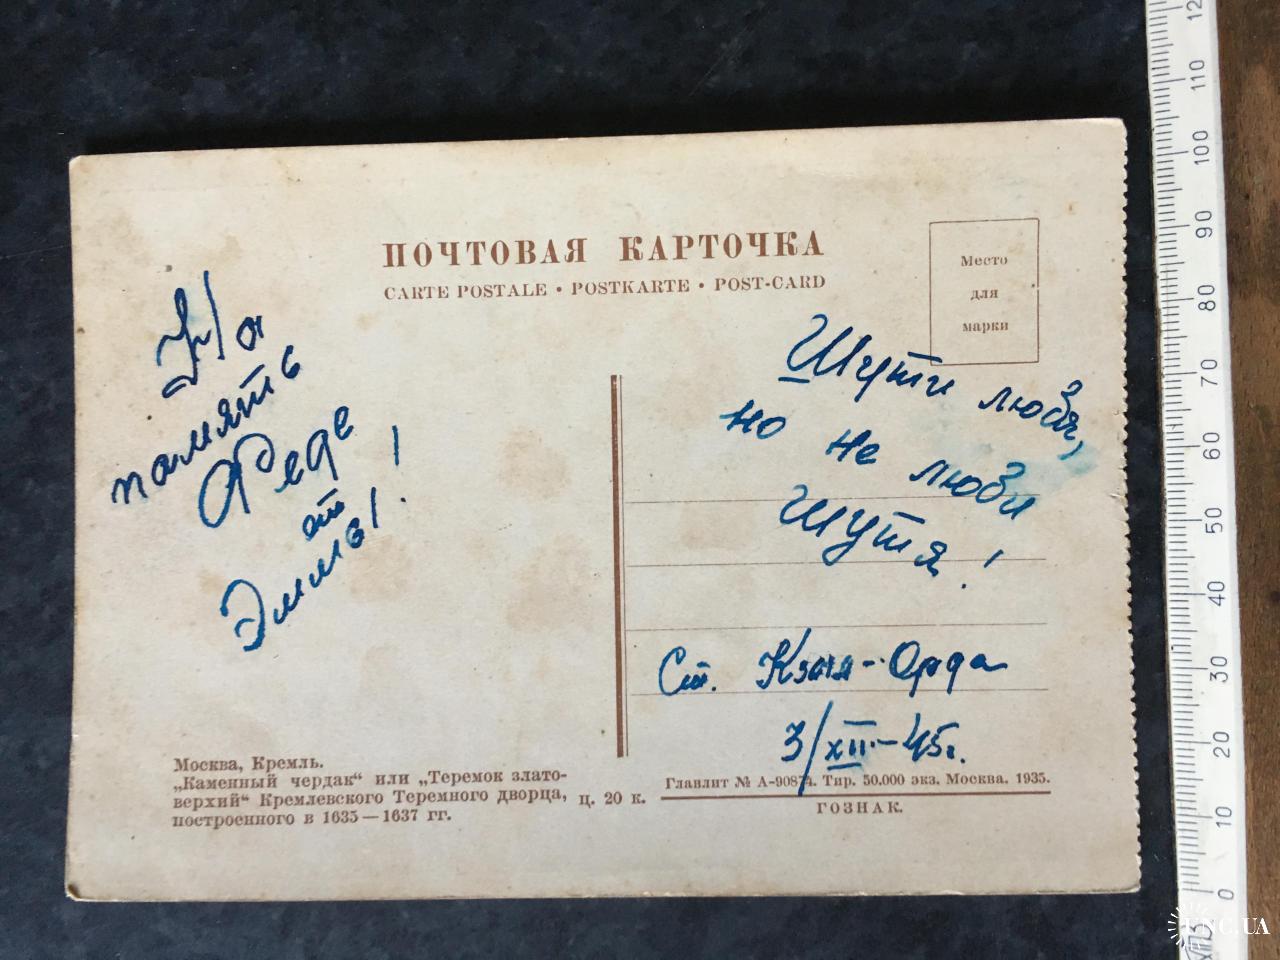 ПОЧТОВАЯ КАРТОЧКА
CARTE POSTALE • POSTKARTE • POST-CARD
Место
для
марки
На
память
Феде
от
Эммы!
Шути любя,
но не люби
Шутя!
Ст. Кзыл-Орда
3/XII-45г.
Москва, Кремль.
„Каменный чердак“ или „Теремок злато-
верхий“ Кремлевского Теремного дворца,
построенного в 1635—1637 гг.
ц. 20 к.
Главлит № А-90874. Тир. 50.000 экз. Москва. 1935.
ГОЗНАК.
0 10 20 30 40 50 60 70 80 90 100 110 12
UNC.UA